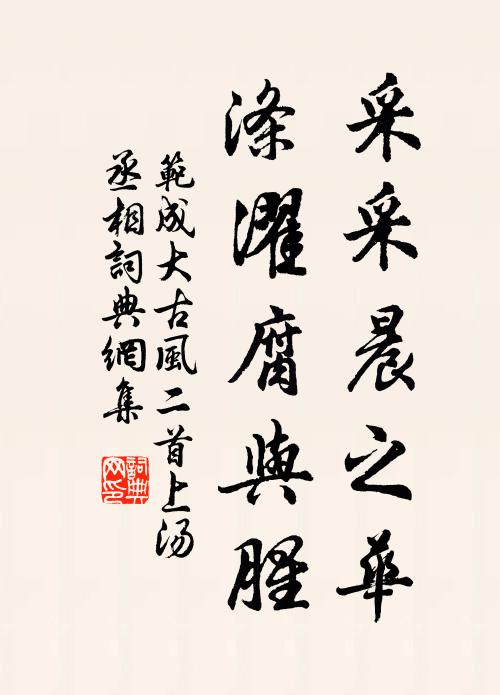 采采晨之華
滌濯腐與腥
範成大古風二首上汤
丞相詞典網集
詞典网印